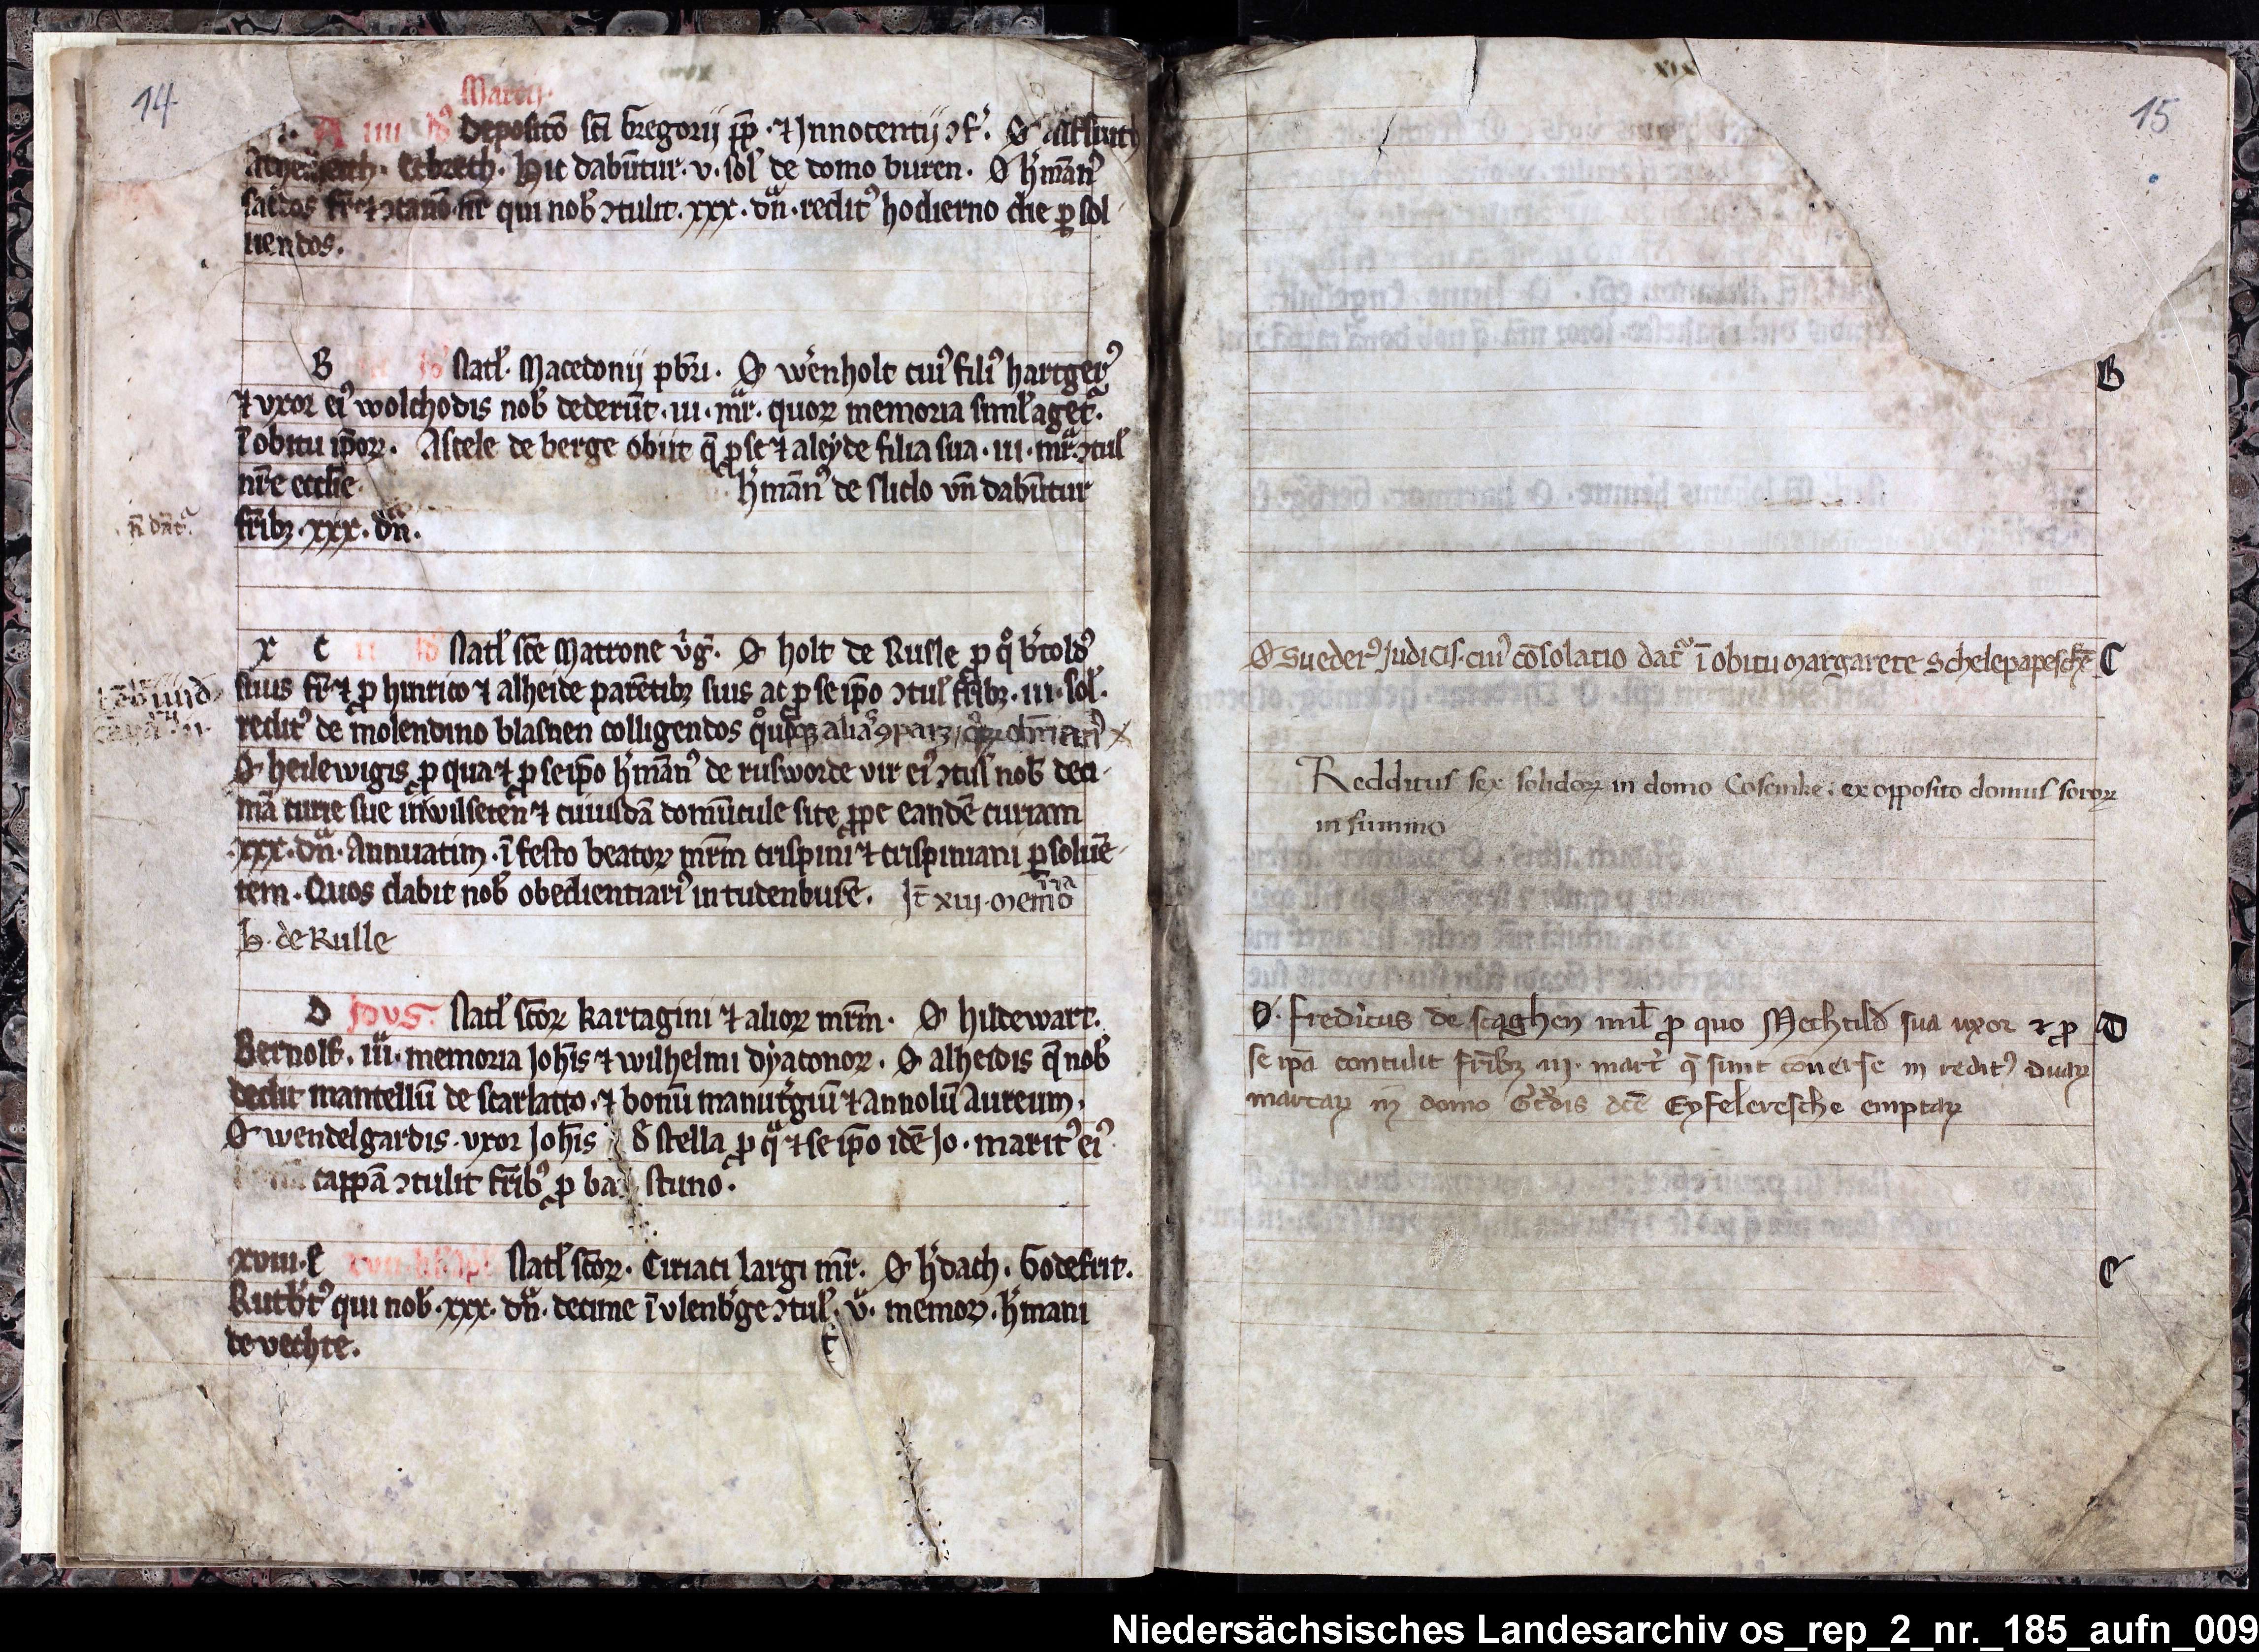 14
Marcii
A IIII Id' Depositō sc̄i Gregorii pp̄ · ⁊ Innocentii ꝯf'. O'
Ecbreth. Hic dabūtur · v · sol' de domo buren. O' h'mān'
sacdos fr̄ ⁊ ꝯcano' nr̄ qui nob' ꝯtulit · xxx · dn̄ · reddit' hodierno die ꝑsol
uendos.
B Id' Natl' Macedonii pbr̄i · O' w'enholt cui' fili' hartger'
⁊ vxor ei' wolthodis nob' dederūt · III · mr̄ · quoꝝ memoria simil' aget'.
ī obitu ip̄oꝝ. Astele de berge obiit q̄ ꝑ se ⁊ aleyde filia sua · III · mr̄ · ꝯtul'
nr̄e ecclīe h'mān' de sliclo vn̄ dabūtur
n̄ dāt'
fr̄ibꝫ · xxx · dn̄.
X C II Id' Natl' sc̄e Matrone v'g'. O' holt de Rulle ꝑ q° b'told'
suus fr̄ ⁊ ꝑ hinrico ⁊ alheide parētibꝫ suis ac ꝑ se ip̄o ꝯtul' fr̄ibꝫ · III · sol'.
reddit' de molendino blasnen colligendos
O' heilewigis ꝑ qua ⁊ ꝑ se ip̄o h'mān' de rusworde vir ei' ꝯtul' nob' deci-
mā curie sue in wilseten ⁊ cuiusdā domūcule site ꝓpe eandē curiam
· xxx · dn̄ · Annuatim · ī festo beatoꝝ mr̄m crispini ⁊ crispiniani ꝑsoluē-
tem. Quos dabit nob' obedientiari' in tutenburē. It̄ XIII memo'ia
h. de Rulle
D Idus Natl' sc̄oꝝ kartagini ⁊ alioꝝ mr̄m. O' hildewart.
Bernolf. III · memoria Joh̄is ⁊ wilhelmi dyaconoꝝ. O' alheidis q̄ nob'
dedit mantellū de scarlatto · ⁊ bonū manut'giū ⁊ Annolū Aureum.
O' wendelgardis · vxor Joh̄is d' stella ꝑ q̄ ⁊ se ip̄o idē Jo · marit' ei'
cappā ꝯtulit fr̄ib' ꝑ ba stuno.
XVIII · E XVII kl' Apl' Natl' sc̄oꝝ · Ciriaci largi mr̄. O' h'dach · Godefrit.
Rutb't' qui nob' · xxx · dn̄ · decime ī vlenb'ge ꝯtul'. v · memoꝝ · h'mani
de vechte.
XIX
15
B
O' Sueder' Judicis · cui' cōsolatio dat' ī obitu Margarete Schelepapeschē C
Redditus sex solidoꝝ in domo Cosemke · ex opposito domus soroꝝ
in summo
O' · Fredericus de scaghen mil' ꝑ quo Mechtild sua uxor ⁊ ꝑ D
se ipā contulit fr̄ibꝫ · III · mart' q̄ sunt cōuerse in redit' duaꝝ
marcaꝝ in domo G'dis dc̄e Eyfelersche emptaꝝ
E
Niedersächsisches Landesarchiv os_rep_2_nr._185_aufn_009